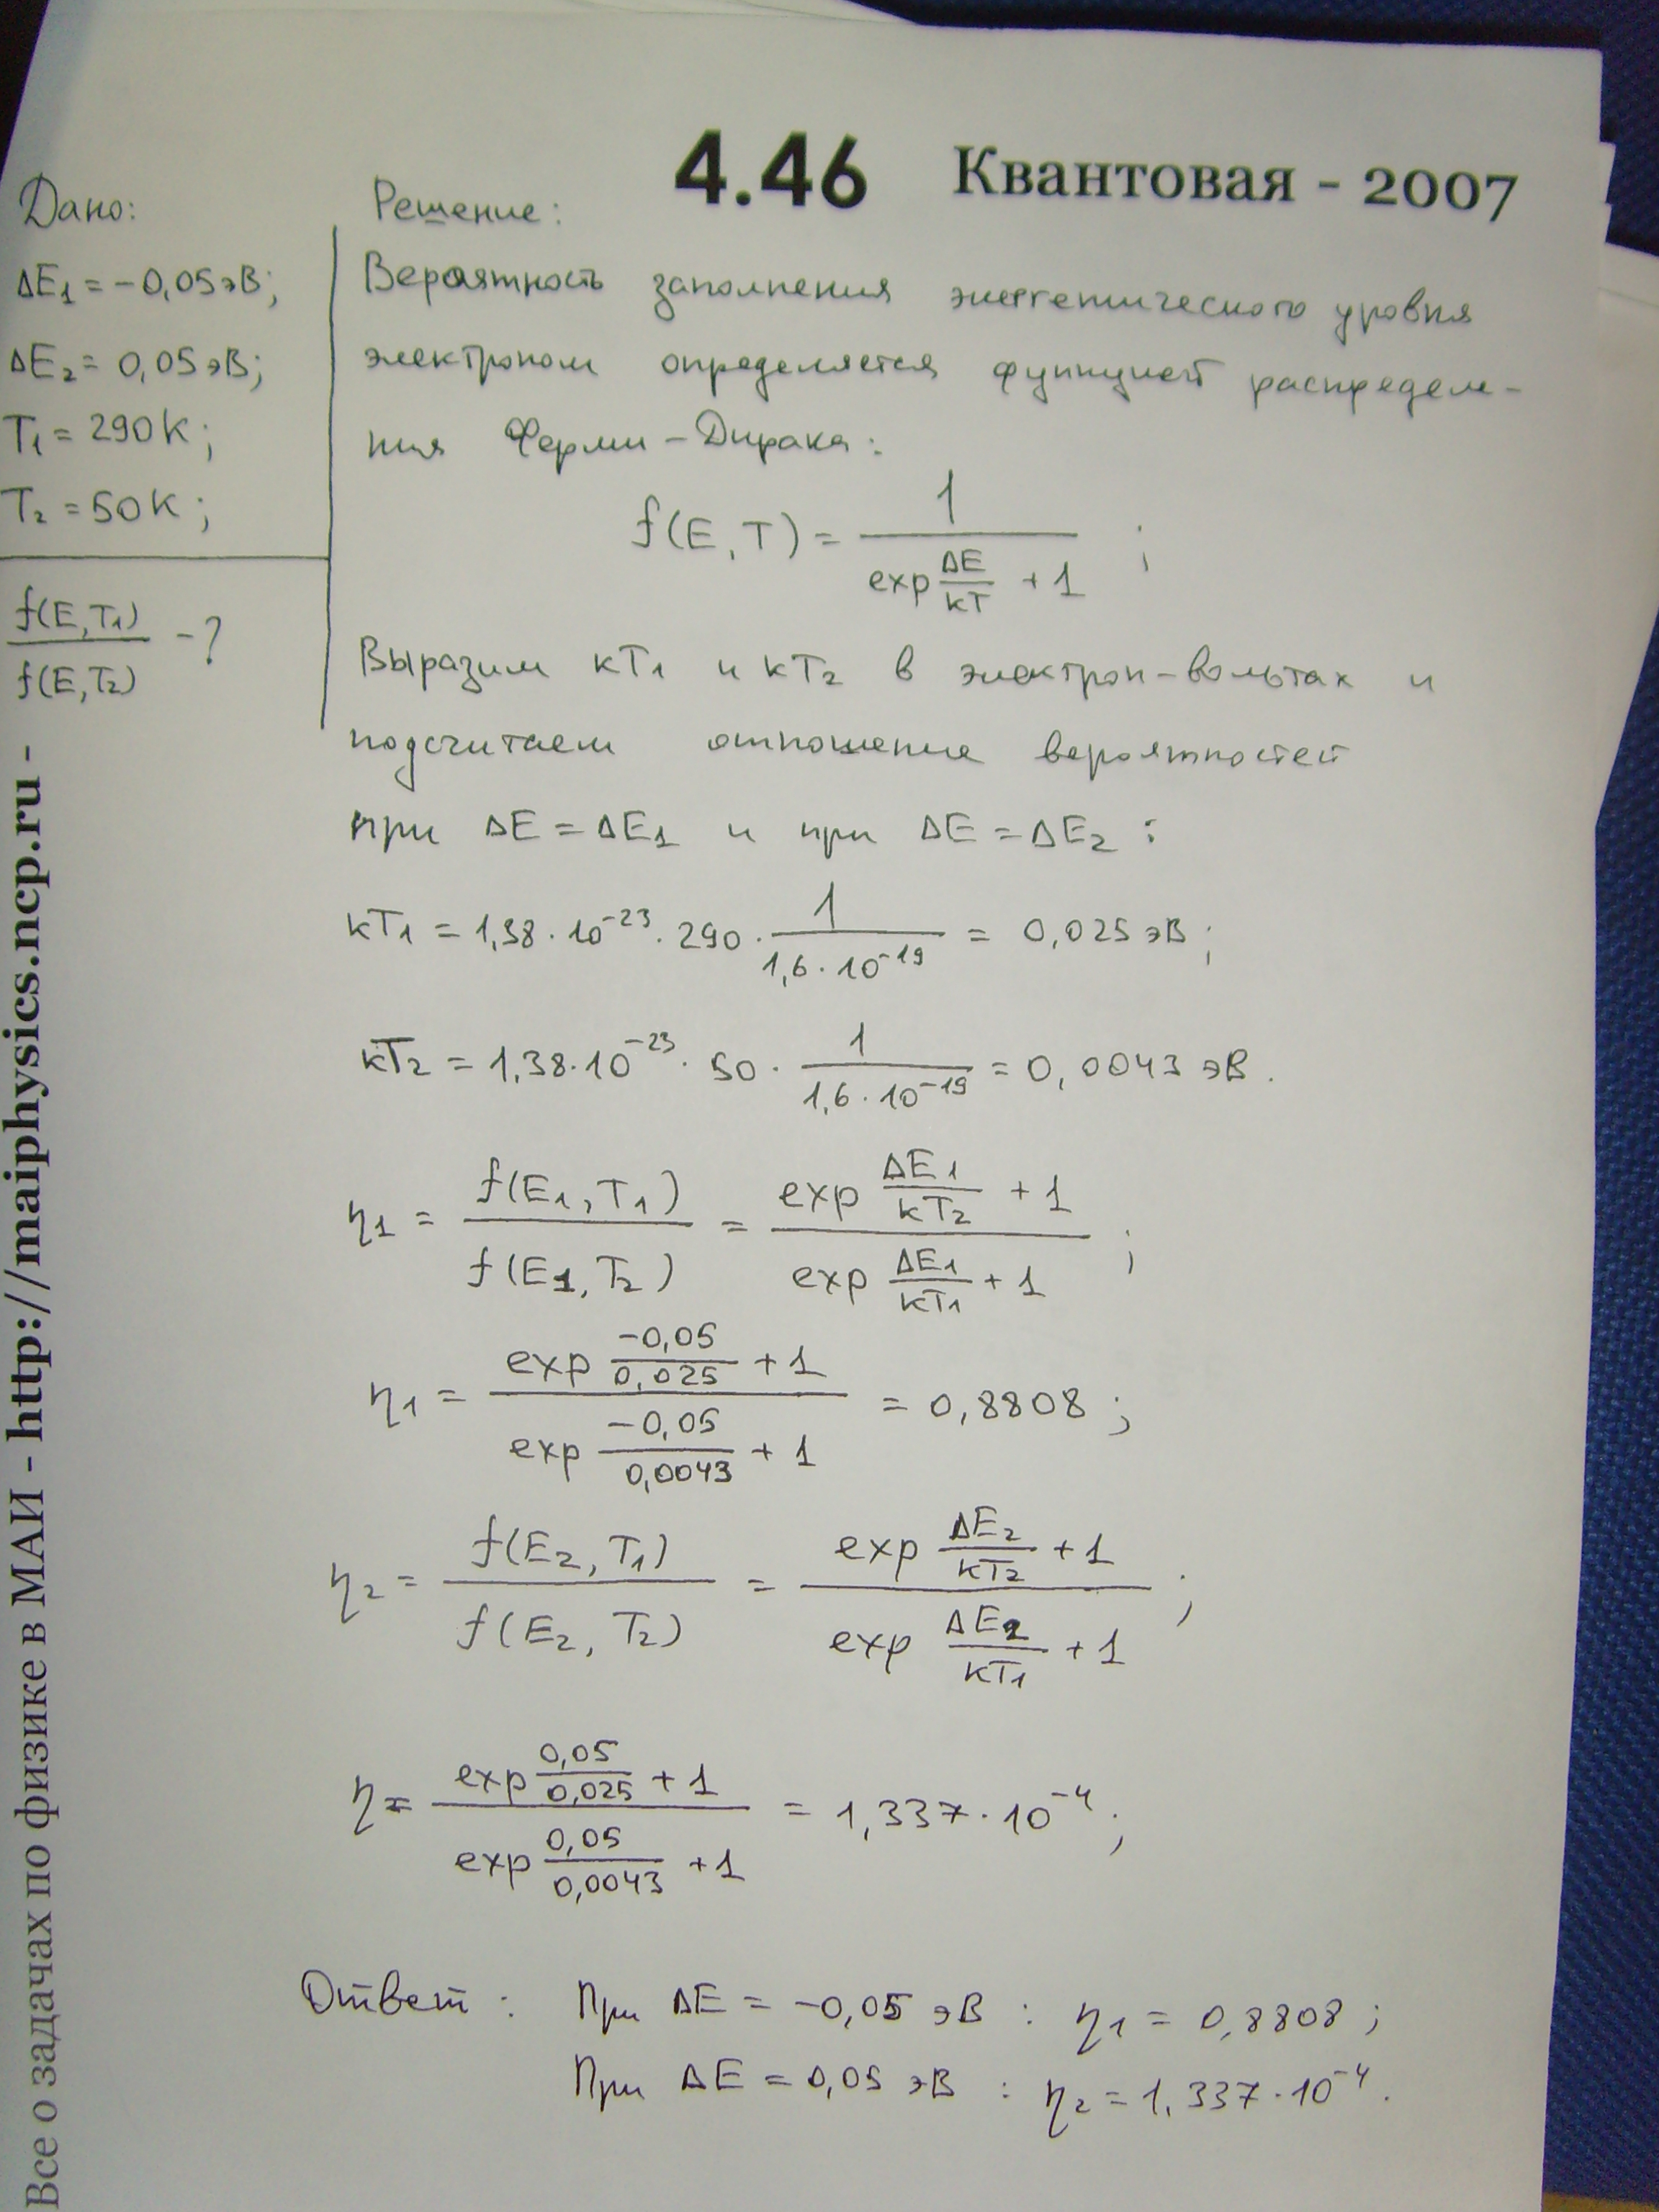 4.46 Квантовая - 2007
Дано:
ΔE₁ = -0,05 эВ;
ΔE₂ = 0,05 эВ;
T₁ = 290К;
T₂ = 50К;
f(E,T₁)
/ f(E,T₂) - ?
Решение:
Вероятность заполнения энергетического уровня
электроном определяется функцией распределе-
ния Ферми-Дирака:
f(E,T) = 1 / (exp ΔE/кT + 1) ;
Выразим кT₁ и кT₂ в электрон-вольтах и
подсчитаем отношение вероятностей
при ΔE = ΔE₁ и при ΔE = ΔE₂ :
кT₁ = 1,38·10⁻²³·290· 1 / 1,6·10⁻¹⁹ = 0,025 эВ;
кT₂ = 1,38·10⁻²³·50· 1 / 1,6·10⁻¹⁹ = 0,0043 эВ.
η₁ = f(E₁,T₁) / f(E₁,T₂) = (exp ΔE₁/кT₂ + 1) / (exp ΔE₁/кT₁ + 1) ;
η₁ = (exp -0,05/0,025 + 1) / (exp -0,05/0,0043 + 1) = 0,8808 ;
η₂ = f(E₂,T₁) / f(E₂,T₂) = (exp ΔE₂/кT₂ + 1) / (exp ΔE₂/кT₁ + 1) ;
η = (exp 0,05/0,025 + 1) / (exp 0,05/0,0043 + 1) = 1,337·10⁻⁴;
Ответ : При ΔE = -0,05 эВ : η₁ = 0,8808 ;
При ΔE = 0,05 эВ : η₂ = 1,337·10⁻⁴.
Все о задачах по физике в МАИ - http://maiphysics.ncp.ru -